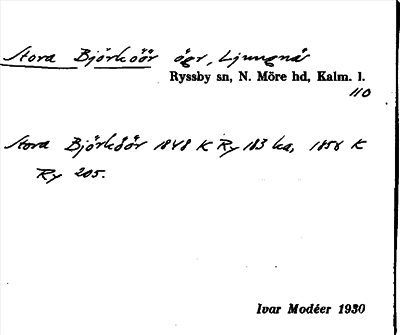 Stora Björköör ögr, Ljungnäs
Ryssby sn, N. Möre hd, Kalm. l.
110
Stora Björköör 1848 K Ry 183 ka, 1856 K
Ry 205.
Ivar Modéer 1930